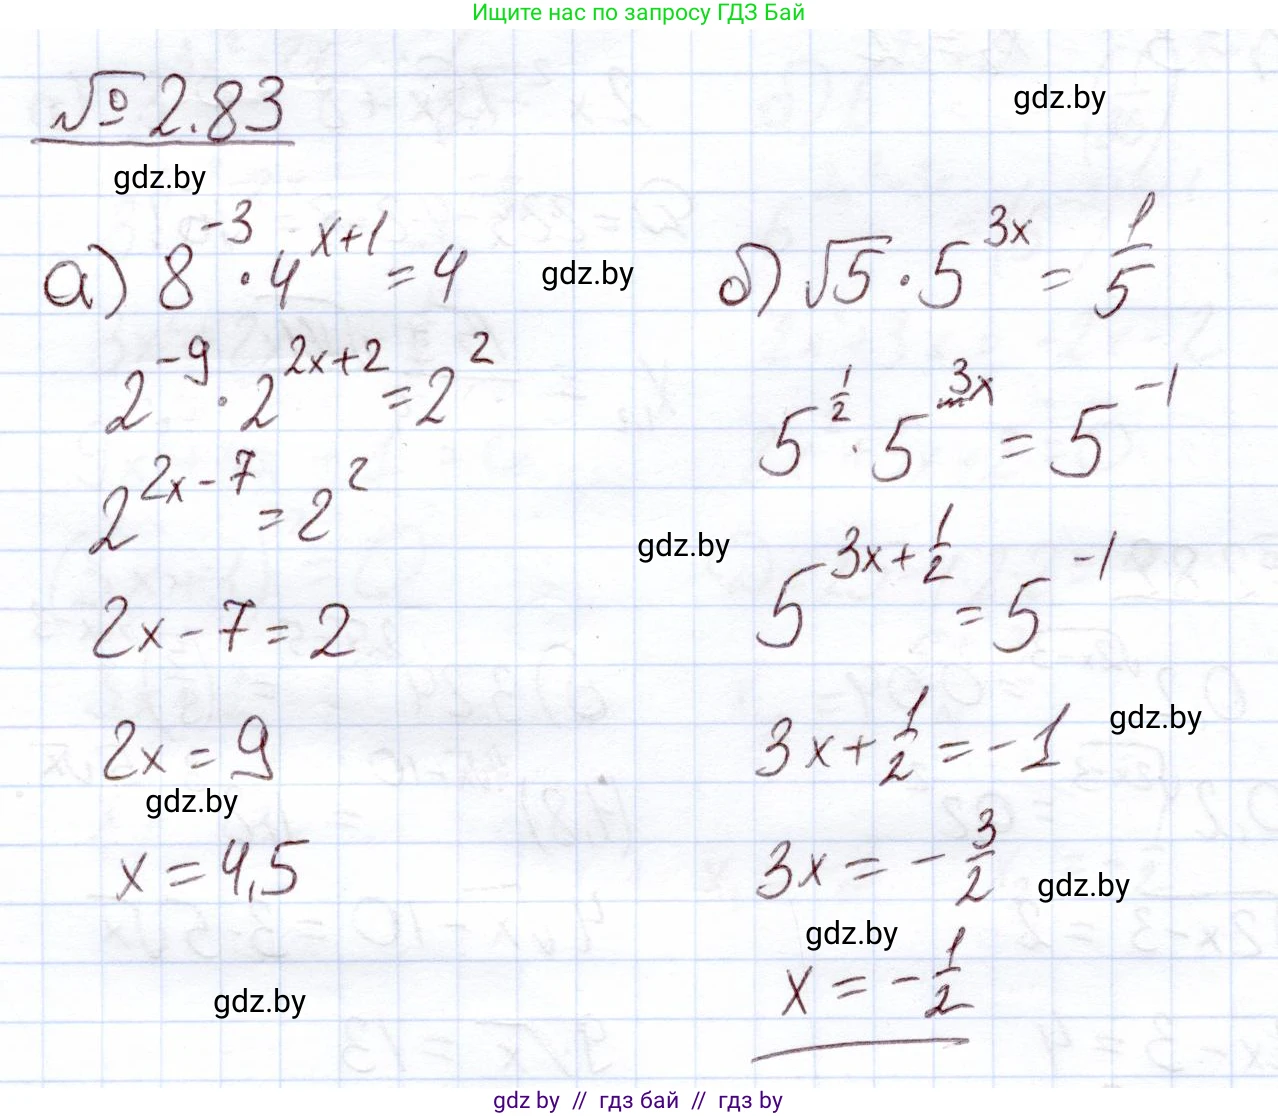 Ищите нас по запросу ГДЗ Бай
№ 2.83
gdz.by
gdz.by
а) 8^{-3} · 4^{x+1} = 4
2^{-9} · 2^{2x+2} = 2^2
2^{2x-7} = 2^2
2x - 7 = 2
2x = 9
gdz.by
x = 4,5
gdz.by
gdz.by
gdz.by
б) √5 · 5^{3x} = 1/5
5^{1/2} · 5^{3x} = 5^{-1}
5^{3x+1/2} = 5^{-1}
3x + 1/2 = -1
gdz.by
3x = - 3/2
gdz.by
gdz.by
x = - 1/2
gdz by // гдз бай // гдз by